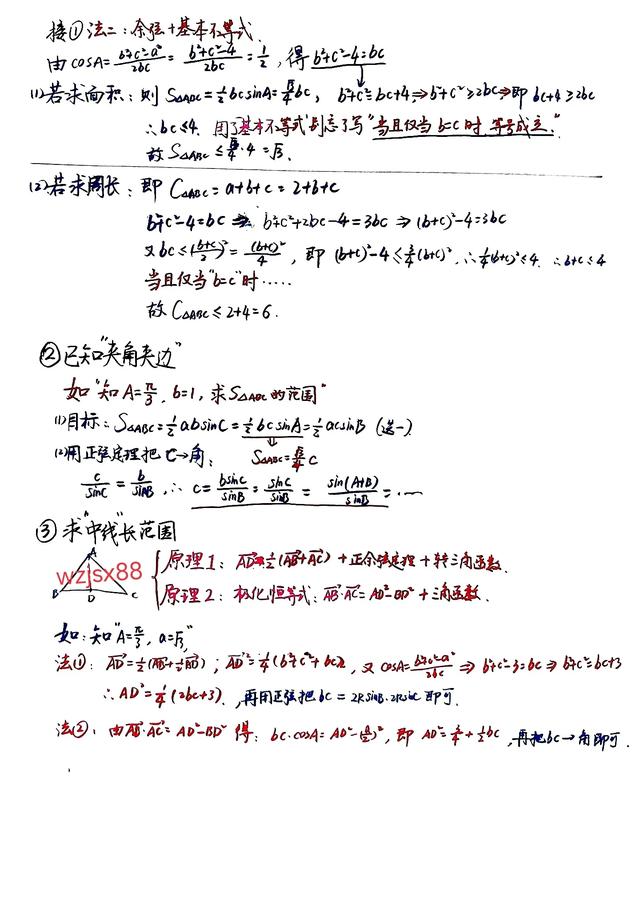 接①法二：余弦+基本不等式.
由 cosA=(b²+c²-a²)/2bc=(b²+c²-4)/2bc=1/2，得 b²+c²-4=bc
(1)若求面积：则 S△ABC=1/2bcsinA=√3/4bc，b²+c²=bc+4⇒b²+c²≥2bc⇒即 bc+4≥2bc
∴bc≤4. 用了基本不等式别忘了写"当且仅当b=c时,等号成立."
故 S△ABC≤√3/4·4=√3.
(2)若求周长：即 C△ABC=a+b+c=2+b+c
b²+c²-4=bc ⇒ b²+c²+2bc-4=3bc ⇒(b+c)²-4=3bc
又bc≤((b+c)/2)²=(b+c)²/4，即 (b+c)²-4≤3/4(b+c)²，∴1/4(b+c)²≤4. ∴b+c≤4
当且仅当"b=c"时……
故 C△ABC≤2+4=6.
②已知"夹角夹边"
如"知A=π/3，b=1，求S△ABC的范围"
(1)目标：S△ABC=1/2absinC=1/2bcsinA=1/2acsinB (选一)
(2)用正弦定理把"C→角： S△ABC=√3/4 c
c/sinC=b/sinB，∴ c=bsinC/sinB=sinC/sinB=sin(A+B)/sinB=……
③求"中线"长范围
A
B D C
wzjsx88
原理1：AD=1/2(AB+AC)+正余弦定理+转三角函数.
原理2：极化恒等式：AB·AC=AD²-BD²+三角函数.
如：知"A=π/3，a=√3"
法①：AD²=1/4(b²+c²+bc)，又cosA=(b²+c²-a²)/2bc⇒b²+c²-3=bc⇒b²+c²=bc+3
∴AD²=1/4(2bc+3)，再用正弦把bc=2RsinB·2RsinC即可.
法②：由AB·AC=AD²-BD² 得：bc·cosA=AD²-(a/2)²，即 AD²=3/4+1/2bc，再把bc→角即可.